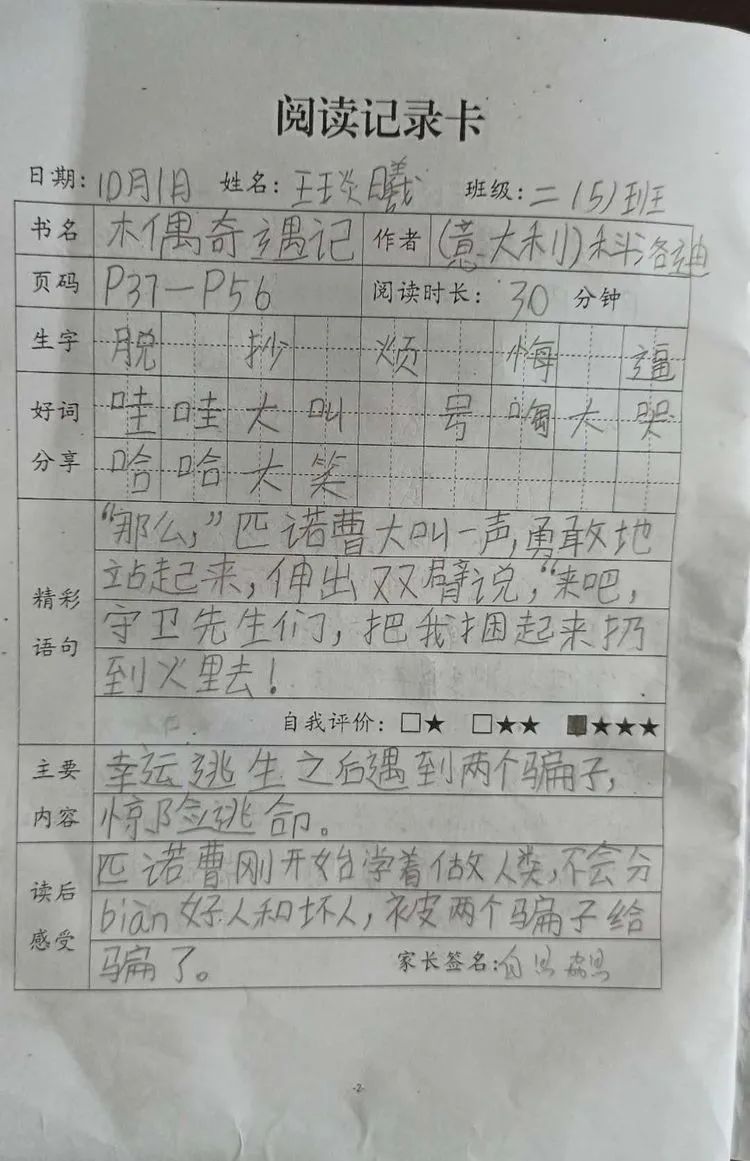 阅读记录卡
日期：10月1日 姓名： 班级：二（5）班
书名 木偶奇遇记 作者 （意大利）科洛迪
页码 P37—P56 阅读时长：30分钟
生字 脱 抄 烦 悔 逼
好词 哇哇大叫 号啕大哭
分享 哈哈大笑
精彩语句
“那么，”匹诺曹大叫一声，勇敢地
站起来，伸出双臂说，“来吧，
守卫先生们，把我捆起来扔
到火里去！
自我评价：□★ □★★ ■★★★
主要 幸运逃生之后遇到两个骗子，
内容 惊险逃命。
读后感受
匹诺曹刚开始学着做人类，不会分
bian好人和坏人，被两个骗子给
骗了。 家长签名：
-2-